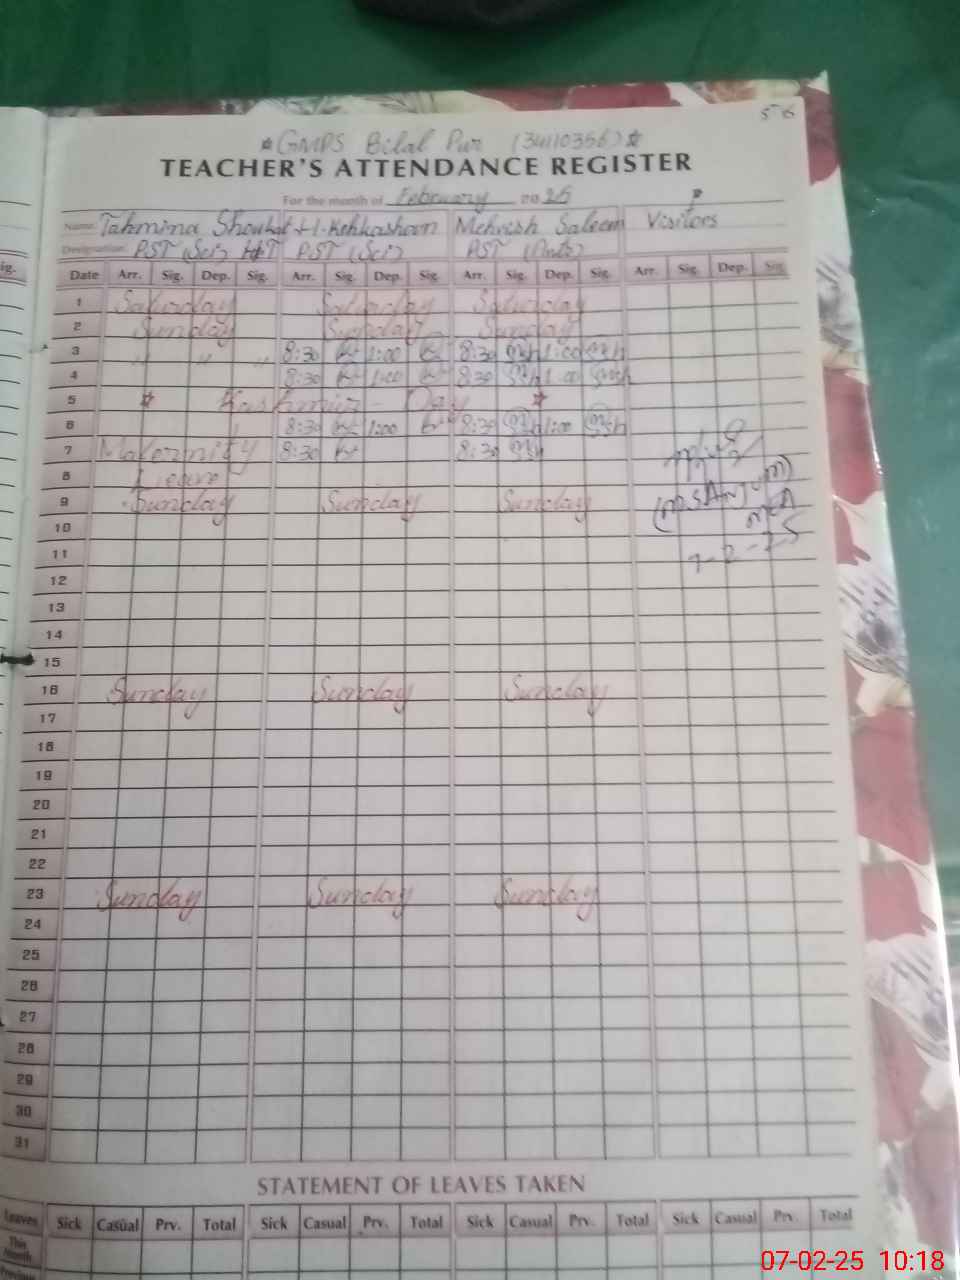 56
★ GMPS Bilal Pur (34110356) ★
TEACHER'S ATTENDANCE REGISTER
For the month of February 20 25
Name: Tahmina Shoukat H.I. Kehkashaan Mehvish Saleem Visitors
Designation: PST (Sci) H.T PST (Sci) PST (Arts)
Sig. Date Arr. Sig. Dep. Sig. Arr. Sig. Dep. Sig. Arr. Sig. Dep. Sig. Arr. Sig. Dep. Sig.
1 Saturday Saturday Saturday
2 Sunday Sunday Sunday
3 " " " 8:30 1:00 8:30 1:00
4 8:30 1:00 8:30 1:00
5 ★ Kashmir - Day ★
6 8:30 1:00 8:30 1:00
7 Maternity 8:30 8:30
8 Leave
9 Sunday Sunday Sunday
(M.S ANJUM)
10
MEA
11
7-2-25
12
13
14
15
16 Sunday Sunday Sunday
17
18
19
20
21
22
23 Sunday Sunday Sunday
24
25
26
27
28
29
30
31
STATEMENT OF LEAVES TAKEN
Leaves Sick Casual Prv. Total Sick Casual Prv. Total Sick Casual Prv. Total Sick Casual Prv. Total
This Month
Previous
07-02-25 10:18